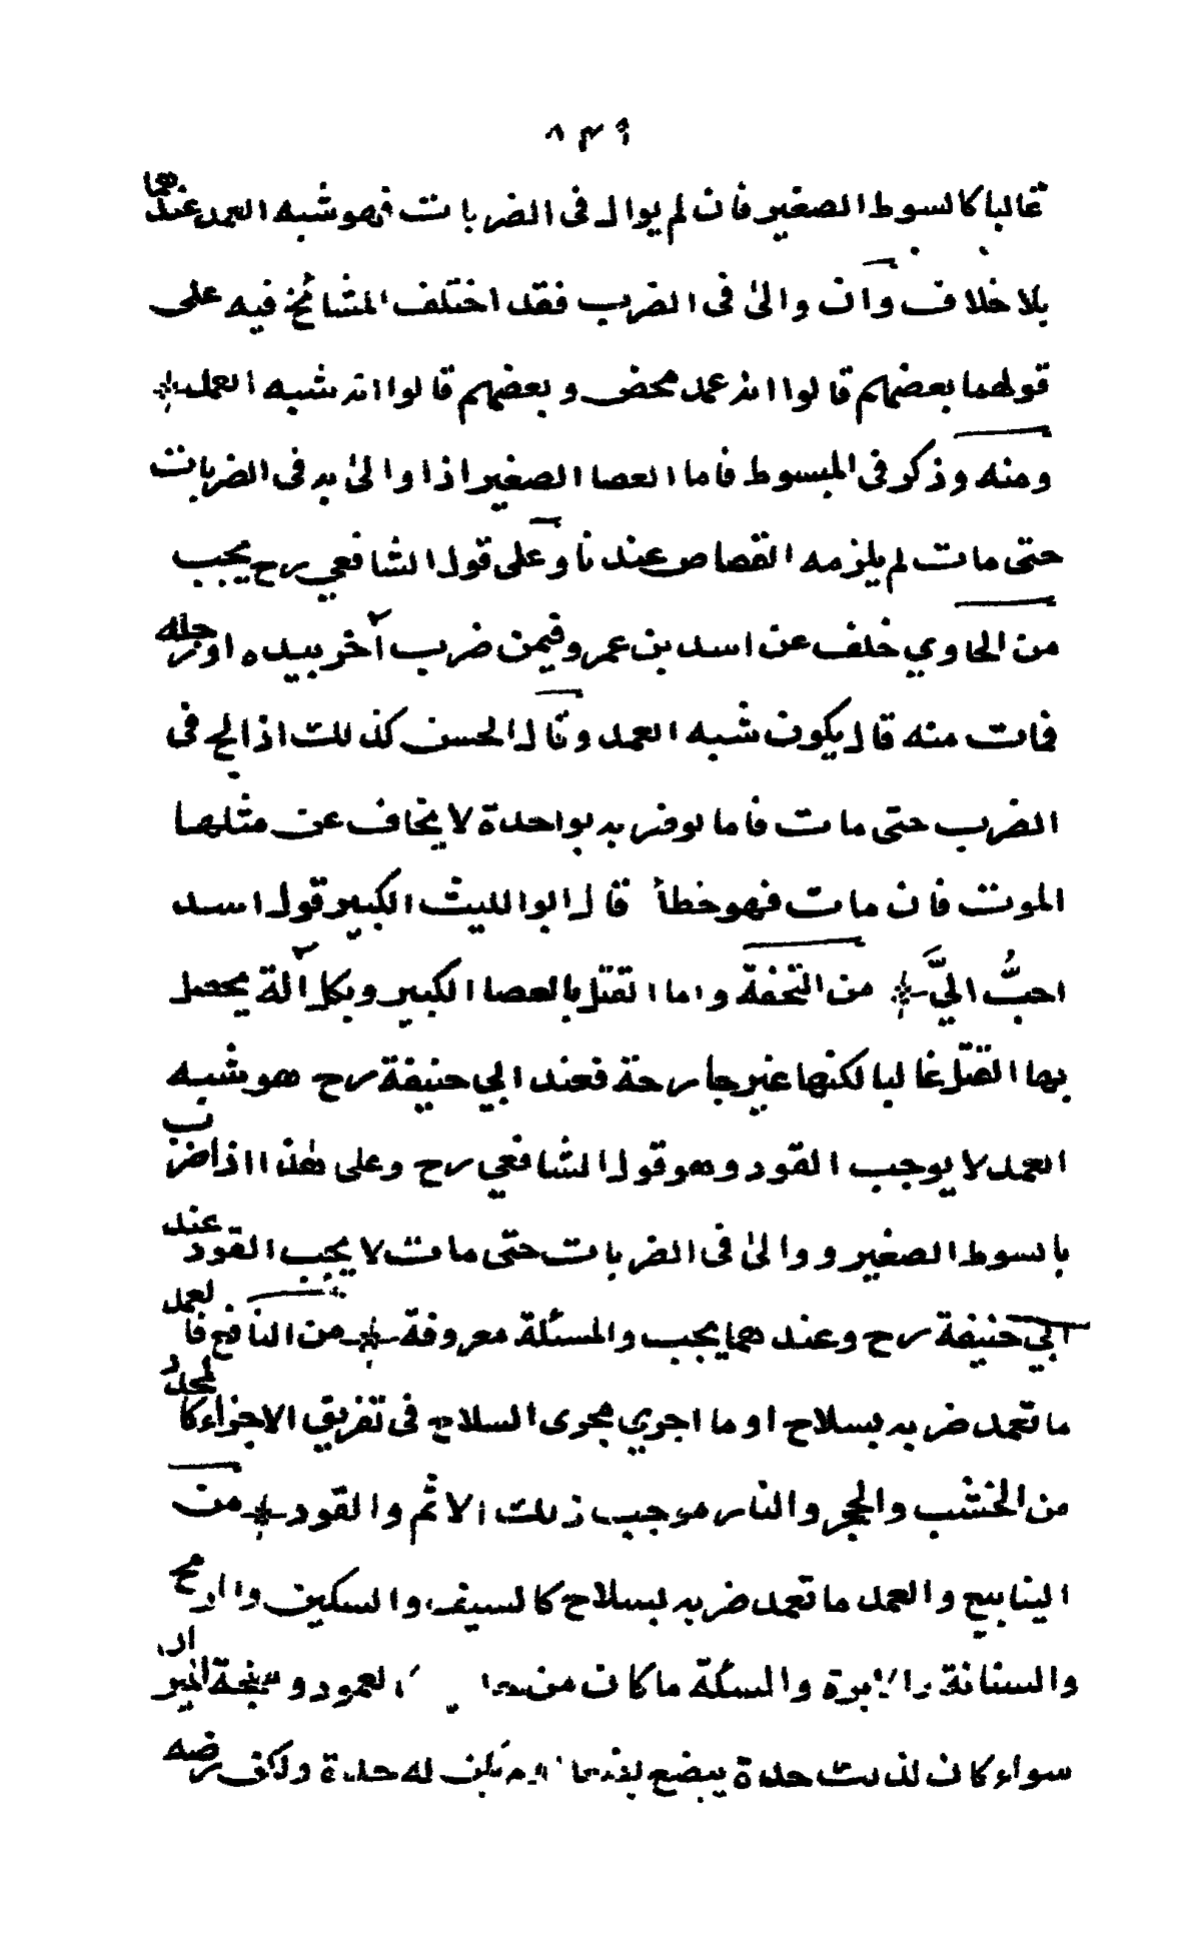 ٨٣٩
غالبا كالسوط الصغير فان لم يوال فى الضربات فهو شبه العمد عندهما
بلا خلاف وان والىٰ فى الضرب فقد اختلف المشائخ فيه على
قولهما بعضهم قالوا انه عمد محض وبعضهم قالوا انه شبه العمد *
ومنه وذكر فى المبسوط فاما العصا الصغير اذا والىٰ به فى الضربات
حتى مات لم يلزمه القصاص عندنا وعلى قول الشافعي رح يجب
من الحاوي خلف عن اسد بن عمر وفيمن ضرب آخر بيده او رجله
فمات منه قال يكون شبه العمد وقال الحسن كذلك اذا لج فى
الضرب حتى مات فاما لو ضربه بواحدة لا يخاف عن مثلها
الموت فان مات فهو خطأ قال ابو الليث الكبير قول اسد
احبُّ اليَّ * من التحفة واما القتل بالعصا الكبير وبكل آلة يحصل
بها القتل غالبا لكنها غير جارحة فعند ابي حنيفة رح هو شبه
العمد لا يوجب القود وهو قول الشافعي رح وعلى هٰذا اذا ضرب
بالسوط الصغير ووالىٰ فى الضربات حتى مات لا يجب القود عند
ابي حنيفة رح وعندهما يجب والمسئلة معروفة * من النافع فالعمد
ما تعمد ضربه بسلاح او ما اجري مجرى السلاح فى تفريق الاجزاء كالمحدد
من الخشب والحجر والنار موجب ذلك الاثم والقود * من
الينابيع والعمد ما تعمد ضربه بسلاح كالسيف والسكين والرمح
والسنانة والابرة والسكة ما كان من العمود و
سواء كان لذلك حدة يبضع لم يكن له حدة ولكن رضه